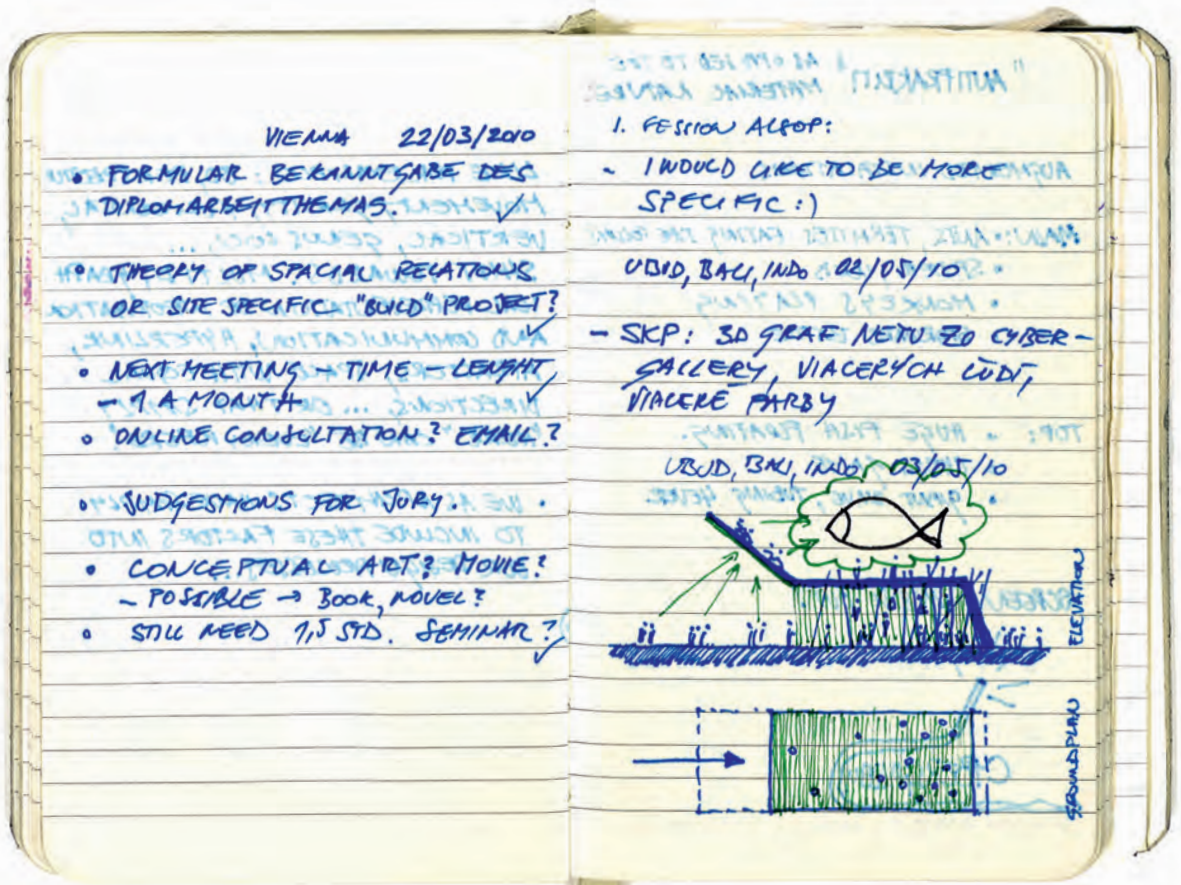 VIENNA 22/03/2010
• FORMULAR BEKANNTGABE DES
DIPLOMARBEITTHEMAS. ✓
• THEORY OF SPACIAL RELATIONS
OR SITE SPECIFIC "BUILD" PROJECT?
✓
• NEXT MEETING – TIME – LENGHT,
– 1 A MONTH ✓
• ONLINE CONSULTATION? EMAIL?
• SUDGESTIONS FOR JURY.
• CONCEPTUAL ART? MOVIE?
– POSSIBLE → BOOK, NOVEL?
• STILL NEED 1,5 STD. SEMINAR?
✓
1. SESSION ALSOP:
- I WOULD LIKE TO BE MORE
SPECIFIC :)
UBUD, BALI, INDO 02/05/10
– SKP: 3D GRAF NETU ZO CYBER-
GALLERY, VIACERÝCH ĽUDÍ,
VIACERÉ FARBY
UBUD, BALI, INDO 03/05/10
ELEVATION
GROUNDPLAN